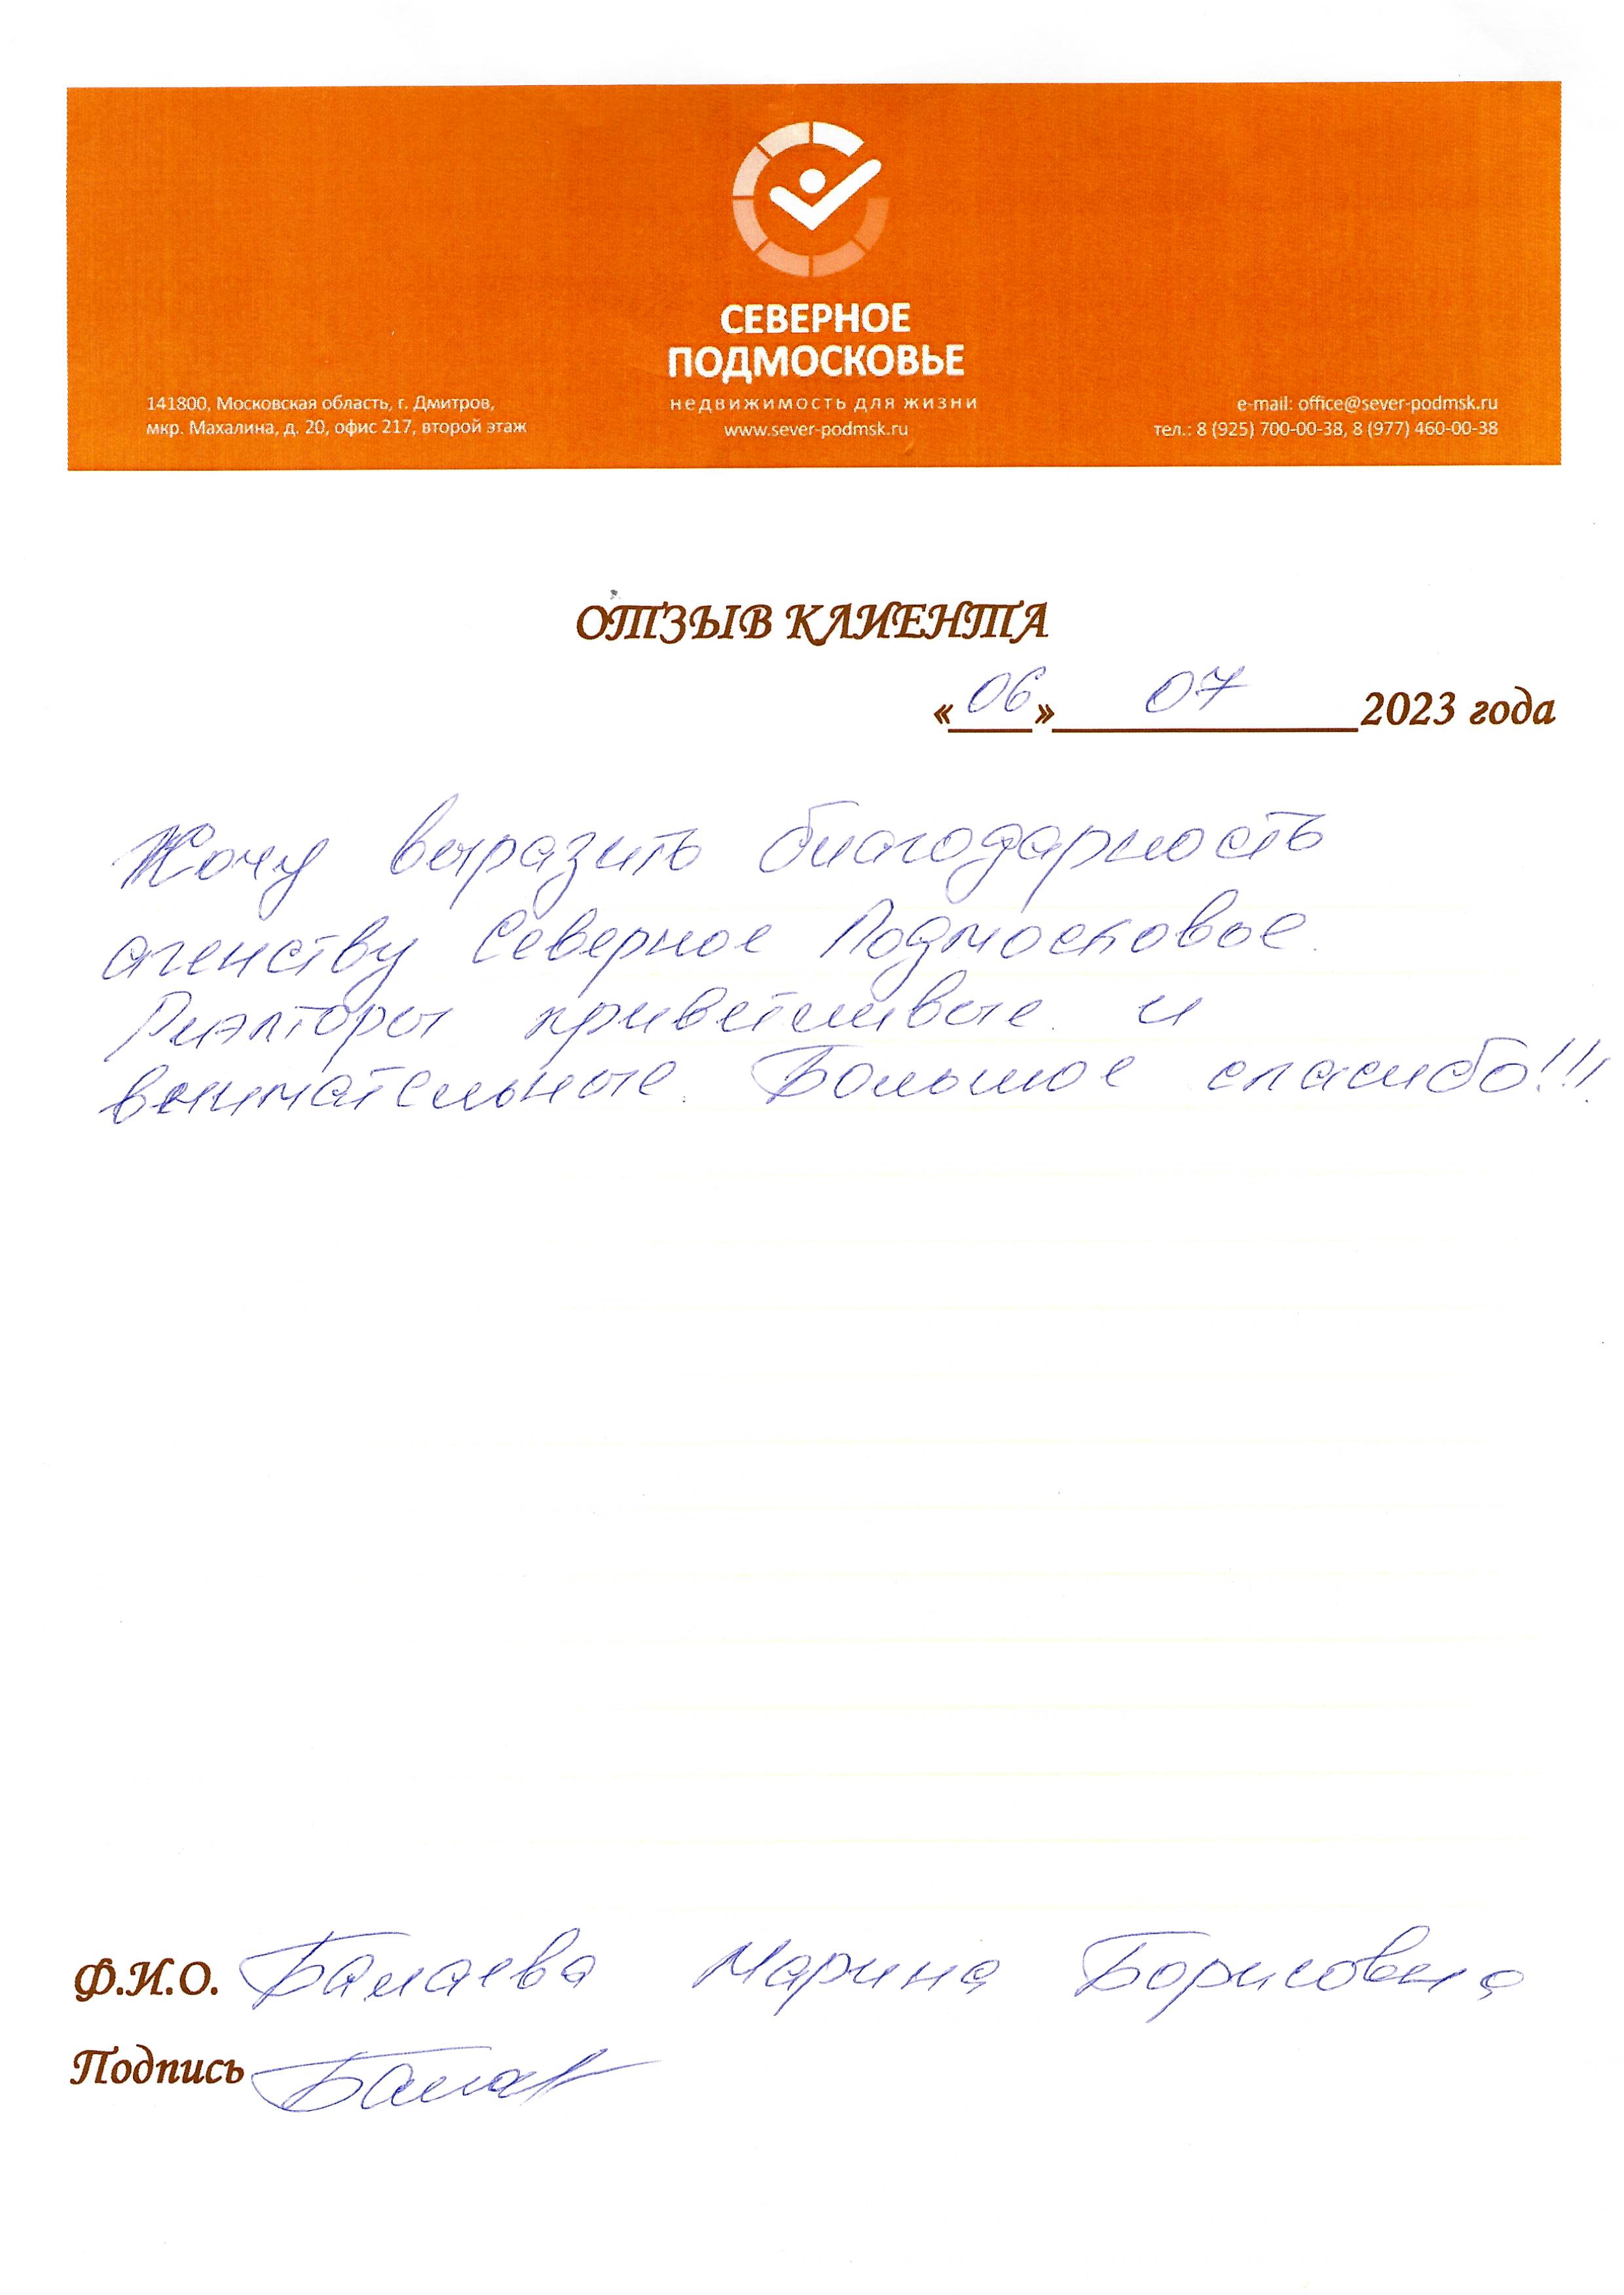 СЕВЕРНОЕ
ПОДМОСКОВЬЕ
недвижимость для жизни
www.sever-podmsk.ru
141800, Московская область, г. Дмитров,
мкр. Махалина, д. 20, офис 217, второй этаж
e-mail: office@sever-podmsk.ru
тел.: 8 (925) 700-00-38, 8 (977) 460-00-38
ОТЗЫВ КЛИЕНТА
«06» 07 2023 года
Хочу выразить благодарность
агенству Северное Подмосковое.
Риэлторы приветливые и
внимательные. Большое спасибо!!!
Ф.И.О. Балаева Марина Борисовна
Подпись Балав